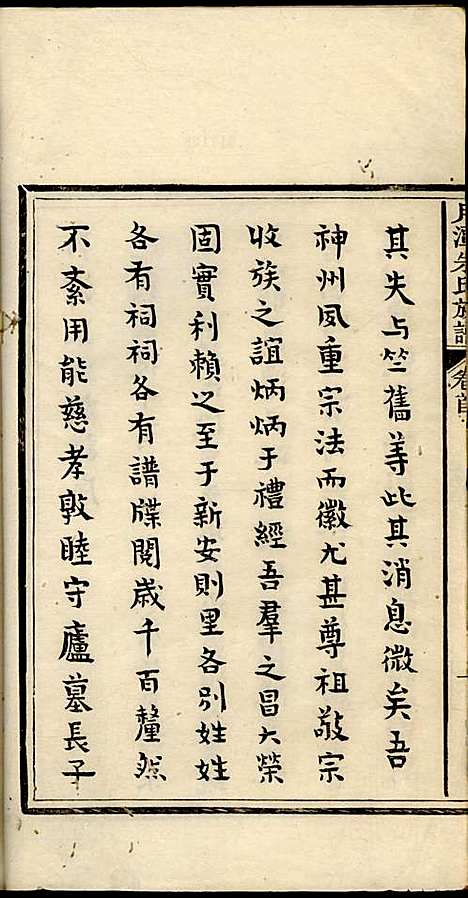 朱氏族譜 卷首
其失与竺舊等此其消息微矣吾
神州夙重宗法而徽尤甚尊祖敬宗
收族之誼炳炳于禮經吾羣之昌大榮
固實利賴之至于新安則里各別姓姓
各有祠祠各有譜牒閱歲千百釐然
不紊用能慈孝敦睦守廬墓長子